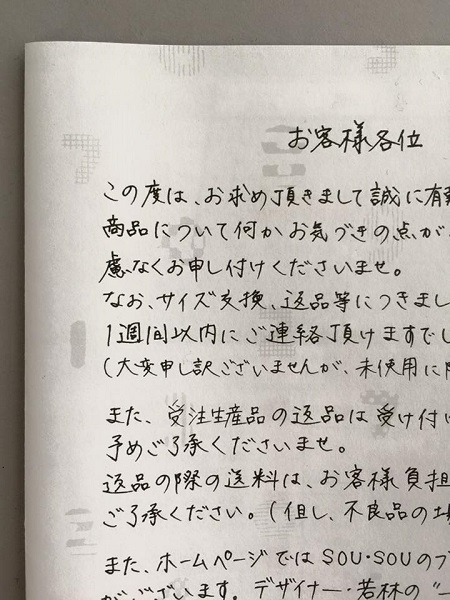 お客様各位
この度は、お求め頂きまして誠に有
商品について何かお気づきの点が
慮なくお申し付けくださいませ。
なお、サイズ交換、返品等につきまし
1週間以内にご連絡頂けますでし
(大変申し訳ございませんが、未使用に
また、受注生産品の返品は受け付
予めご了承くださいませ。
返品の際の送料は、お客様負担
ご了承ください。(但し、不良品の
また、ホームページではSOU・SOUのブ
がございます。デザイナー・若林の"